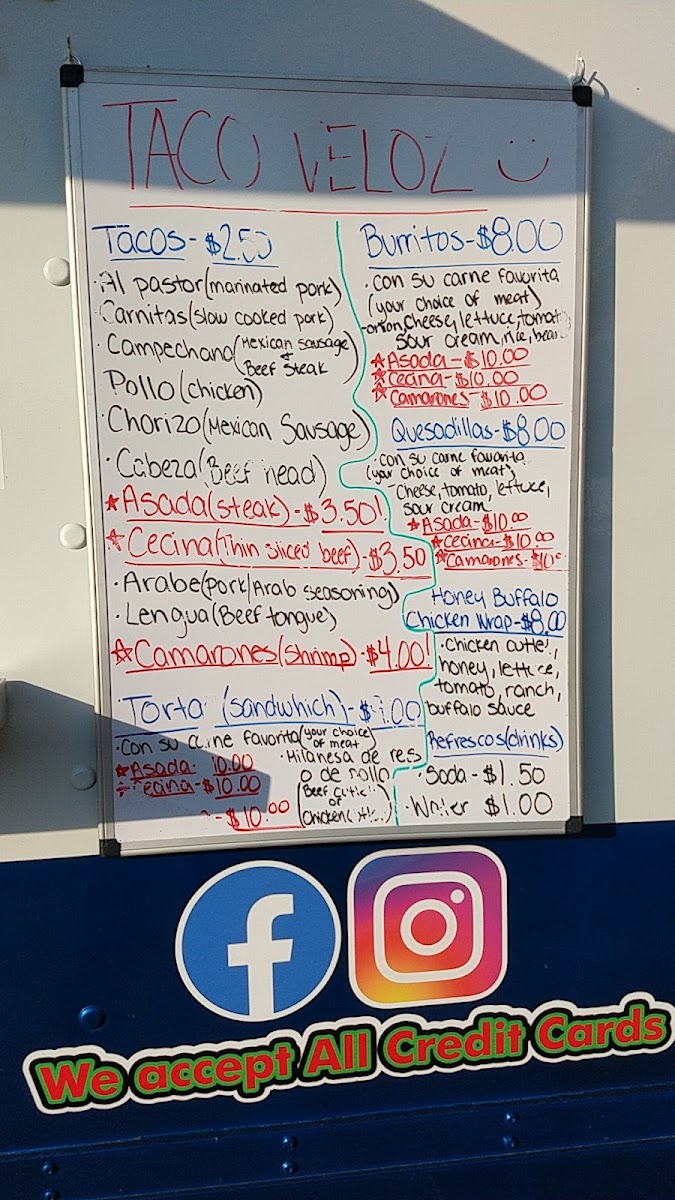 TACO VELOZ
Tacos - $2.50
· Al pastor (marinated pork)
Carnitas (slow cooked pork)
· Campechano (Mexican sausage
+
Beef steak)
Pollo (chicken)
· Chorizo (Mexican Sausage)
· Cabeza (Beef head)
☆ Asada (steak) - $3.50!
☆ Cecina (Thin sliced beef) - $3.50
· Arabe (pork/Arab seasoning)
· Lengua (Beef tongue)
☆ Camarones (shrimp) - $4.00!
Torta (sandwhich) -
· Con su carne favorita (your choice
of meat)
☆ Asada 10.00
Cecina - $10.00
- $10.00
· Milanesa de res
o de pollo
(Beef cutlet
or
Chicken cutlet)
Burritos - $8.00
· con su carne favorita
(your choice of meat)
- onion, cheese, lettuce, tomato,
sour cream, rice, beans
☆ Asada - $10.00
☆ Cecina - $10.00
☆ Camarones - $10.00
Quesadillas - $8.00
· con su carne favorita
(your choice of meat)
- Cheese, tomato, lettuce,
sour cream
☆ Asada - $10.00
☆ Cecina - $10.00
☆ Camarones - $10
Honey Buffalo
Chicken Wrap - $8.00
· Chicken cutlet,
honey, lettuce,
tomato, ranch,
buffalo sauce
Refrescos (drinks)
· Soda - $1.50
· Water $1.00
We accept All Credit Cards